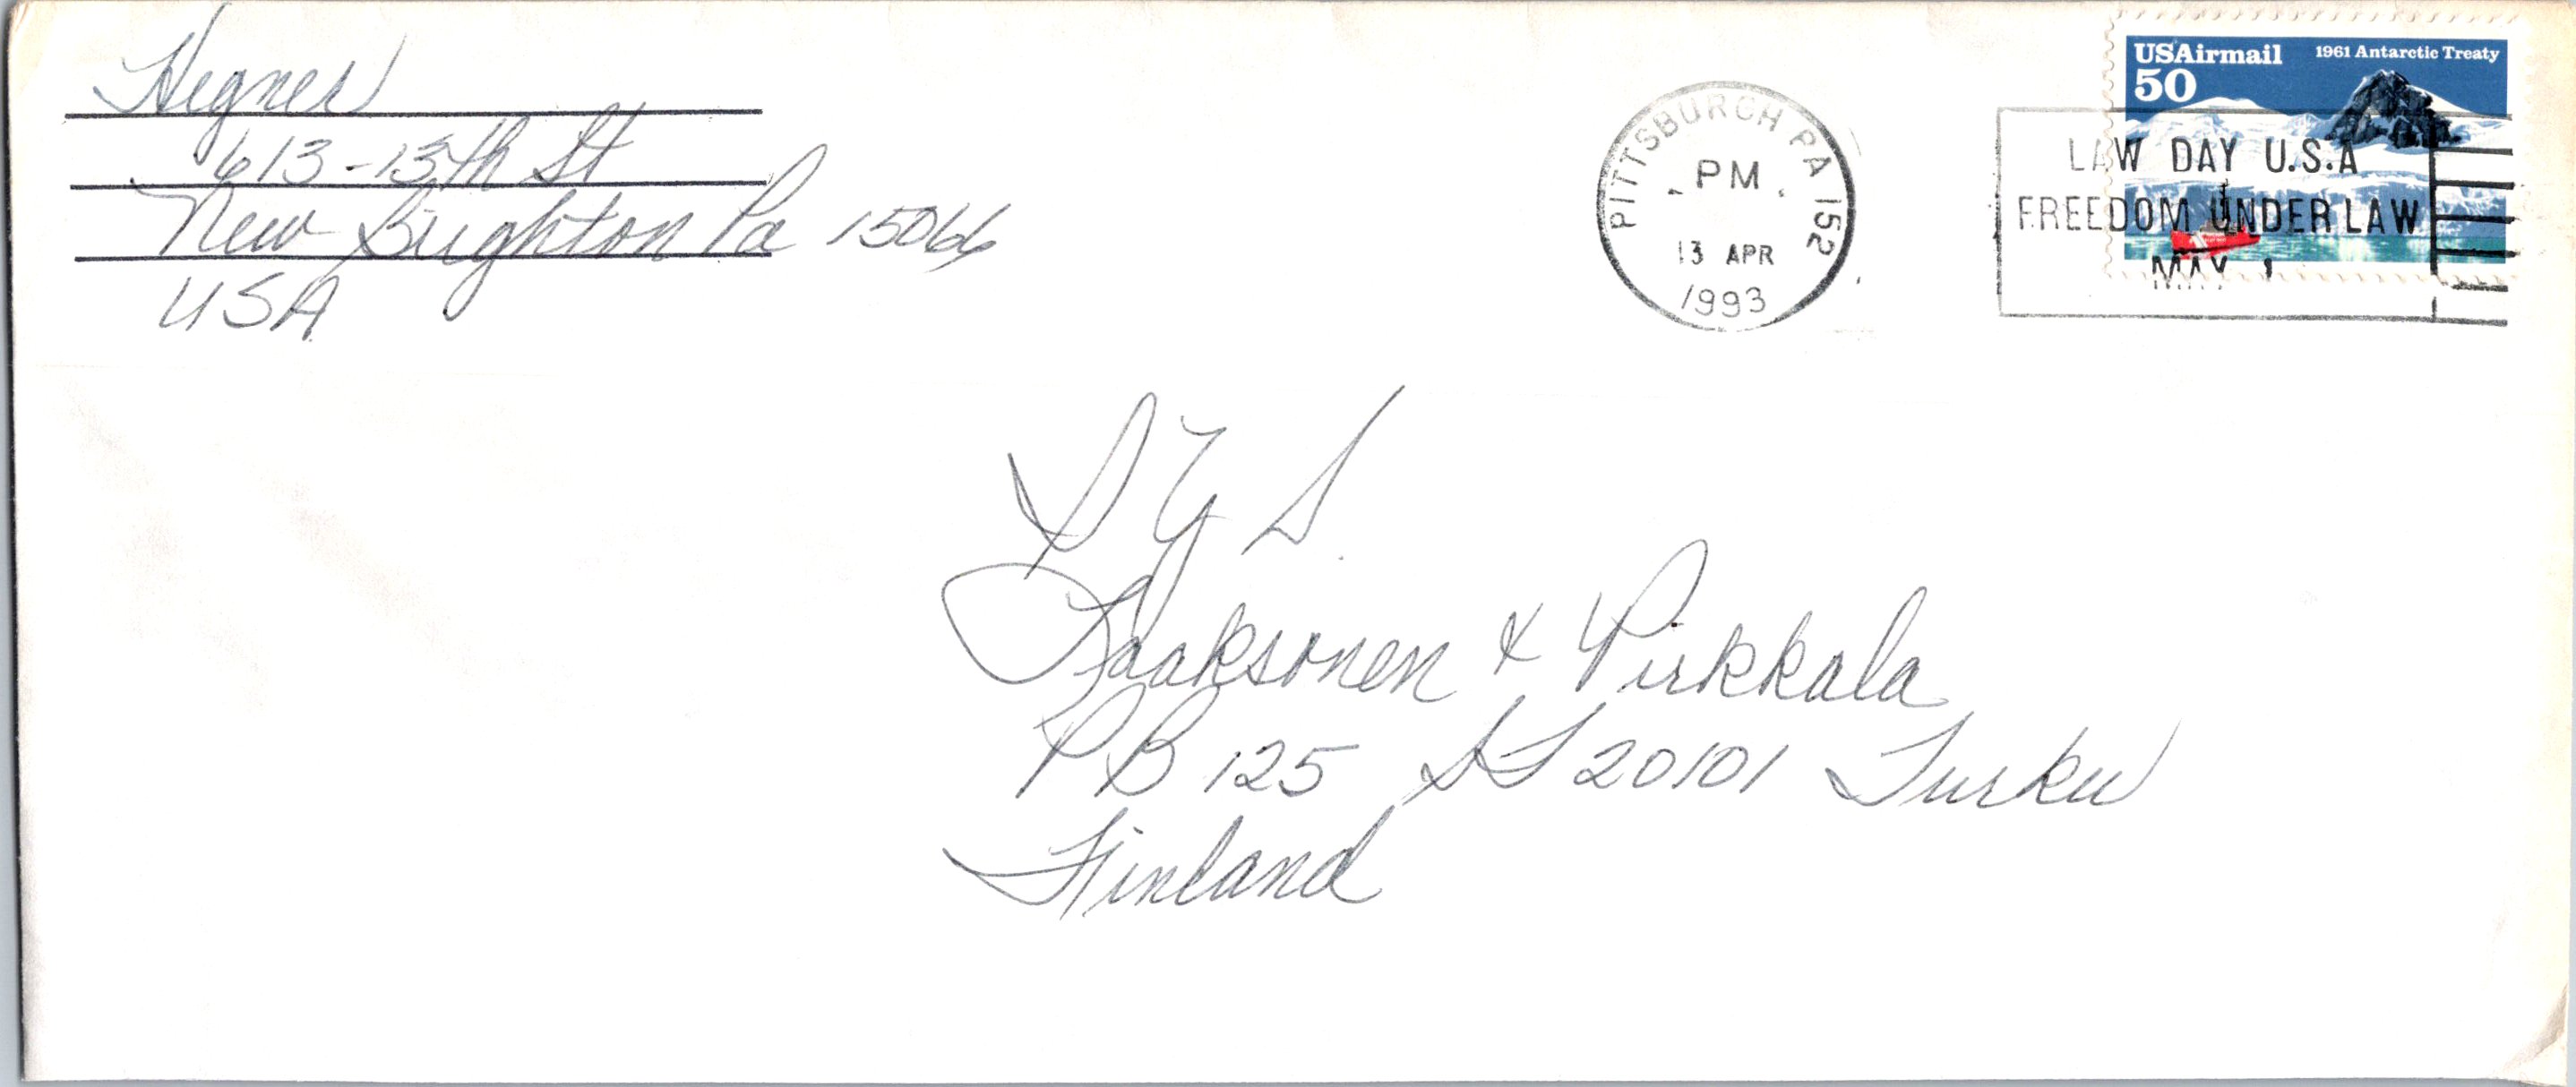 Hegner
613-13th St
New Brighton Pa 15066
USA
PITTSBURGH PA 152
PM
13 APR
1993
USAirmail 1961 Antarctic Treaty
50
LAW DAY U.S.A
FREEDOM UNDER LAW
MAY 1
Laaksonen & Pirkkala
PB 125 SF 20101 Turku
Finland